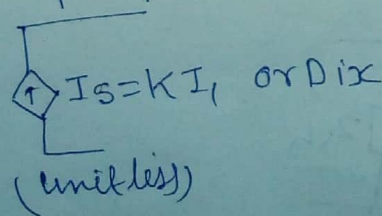 Is = KI, or Dix
(unitless)